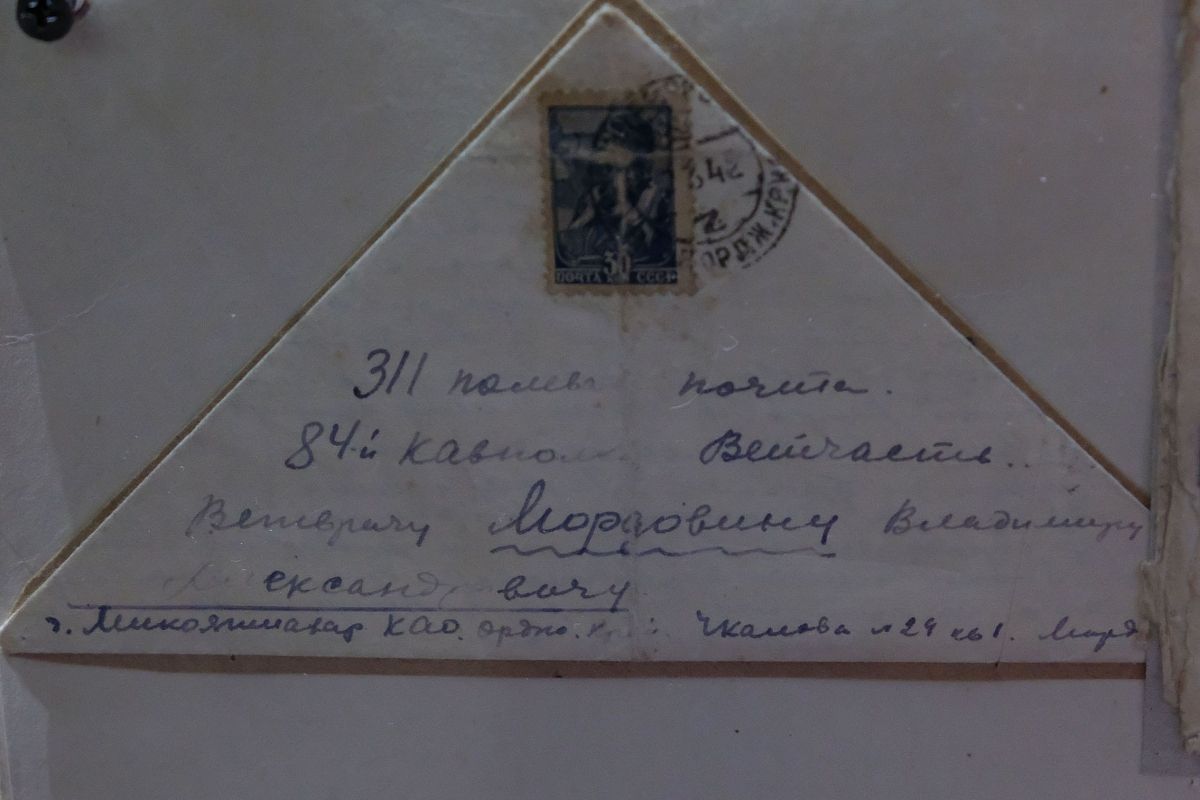 342
2
ОРДЖ.КР
30
ПОЧТА СССР
311 полев почта.
84-й кавпол Ветчасть
Ветврачу Мордовину Владимиру
Александровичу
г. Микояншахар КАО. Ордж. Кр Чкалова №24 кв1. Морд